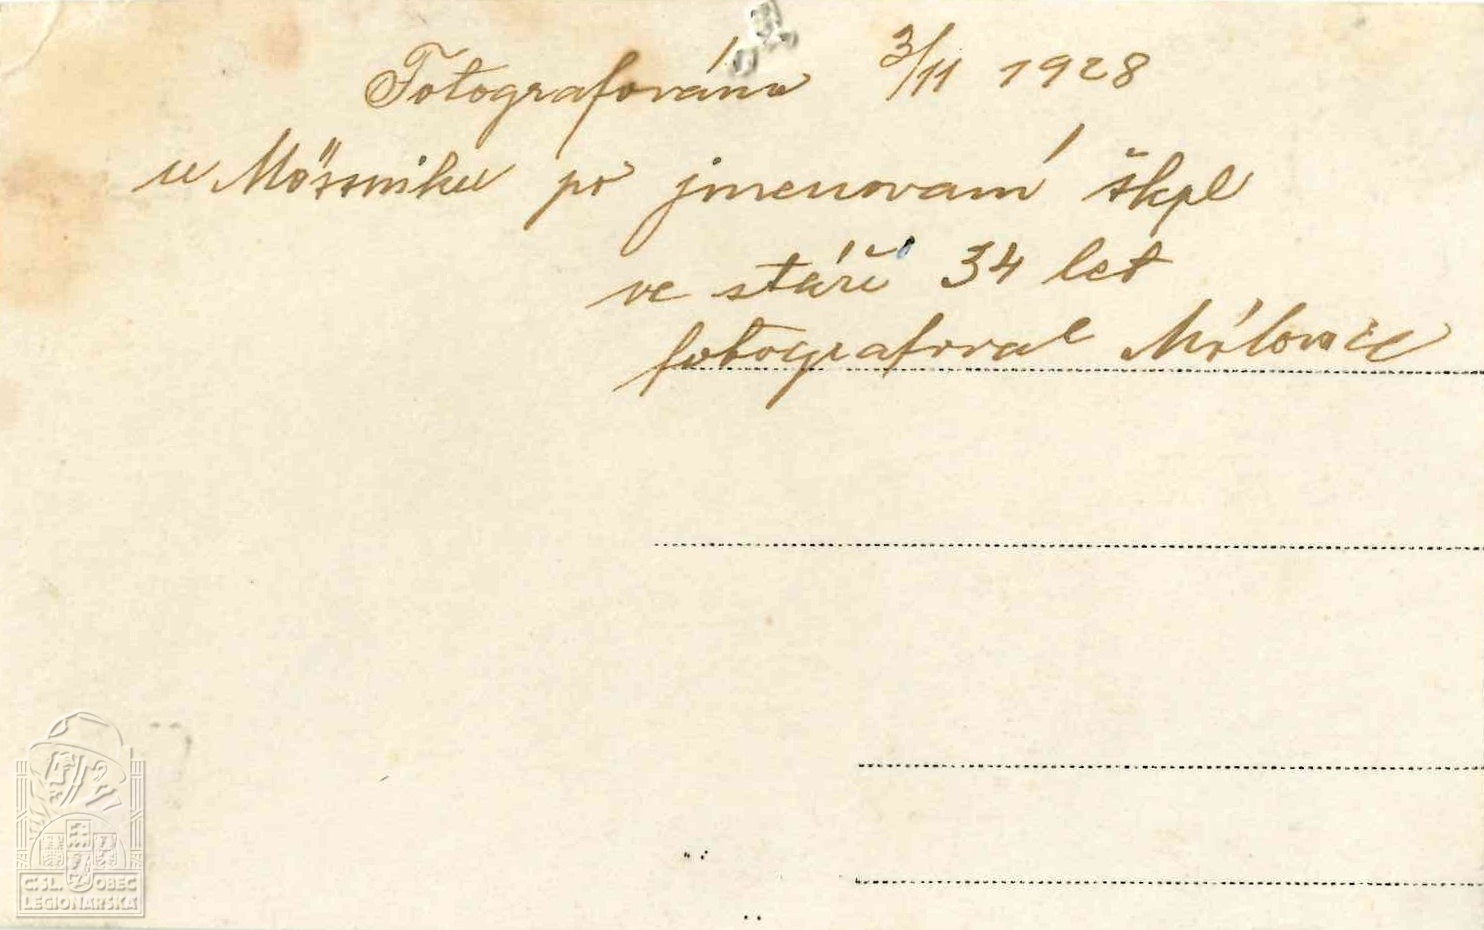 Fotografováno 3/11 1928
u Mössniku po jmenování škpt
ve stáří 34 let
fotografoval
Č.SL. OBEC
LEGIONÁŘSKÁ